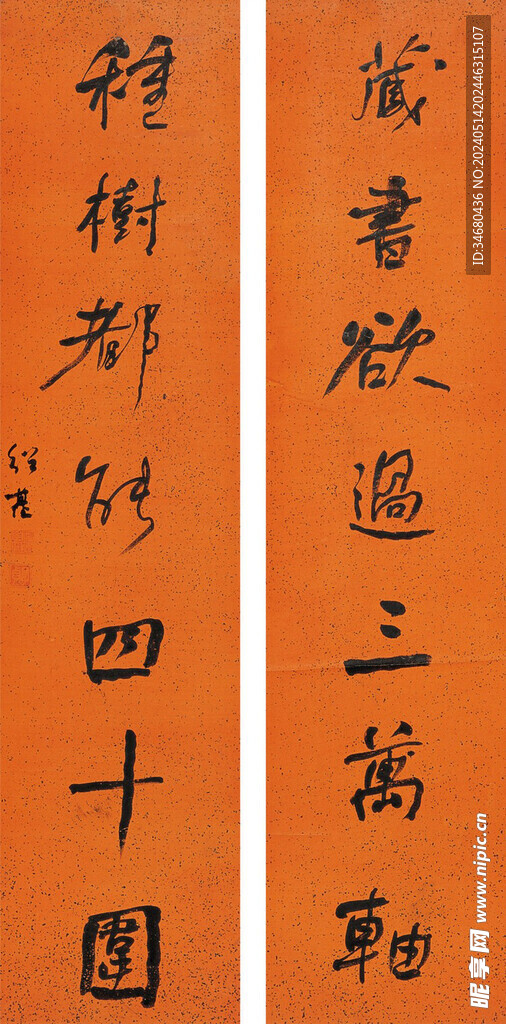 藏書欲過三萬軸
種樹都能四十圍
紹基
ID:34680436 NO:20240514202446315107
昵享网 www.nipic.cn